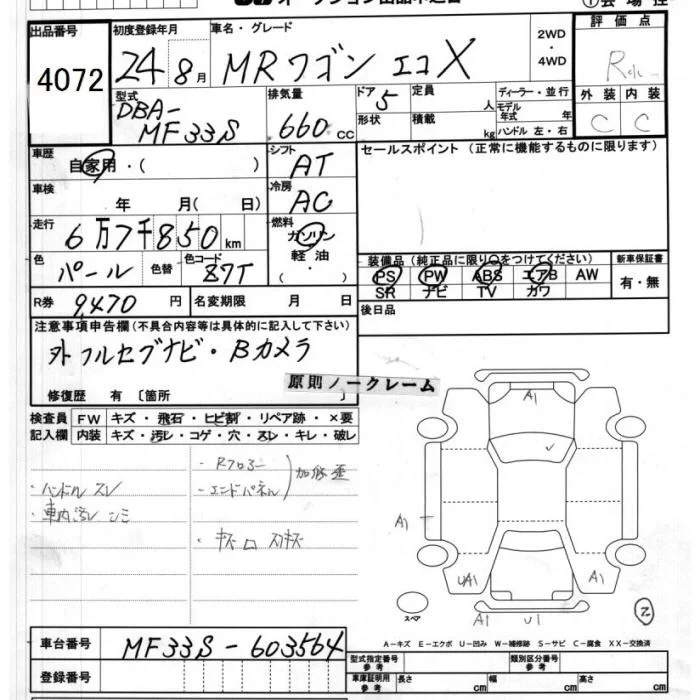 出品番号
4072
初度登録年月
24 8月
車名・グレード
MRワゴン エコX
2WD
・
4WD
評価点
外装 内装
C C
型式
DBA-
MF33S
排気量
660 cc
ドア 5
形状
定員 人
積載 kg
ディーラー・並行
モデル
年式 年
ハンドル 左・右
車歴
自家用・( )
シフト
AT
セールスポイント (正常に機能するものに限ります)
車検
年 月( 日)
冷房
AC
走行
6万7千850km
燃料
ガソリン
軽油
・
( )
色
パール
色替
色コード
Z7T
装備品 (純正品に限り○をつけてください)
新車保証書
PS PW ABS エアB AW
SR ナビ TV カワ
有・無
R券 9,470円
名変期限 月 日
後日品
注意事項申告欄 (不具合内容等は具体的に記入して下さい)
外 フルセグナビ・Bカメラ
修復歴 有 〔箇所 〕
原則ノークレーム
検査員
記入欄
FW キズ・飛石・ヒビ割・リペア跡・×要
内装 キズ・汚レ・コゲ・穴・スレ・キレ・破レ
・Rフロアー
・エンドパネル
加修歪
・ハンドル スレ
・車内汚レ シミ
A1
A1
UA1
A1
A1 U1
スペア
A-キズ E-エクボ U-凹み W-補修跡 S-サビ C-腐食 XX-交換済
車台番号
MF33S-603564
登録番号
型式指定番号
参考
類別区分番号
参考
車庫証明用
参考
長さ cm
幅 cm
高さ cm